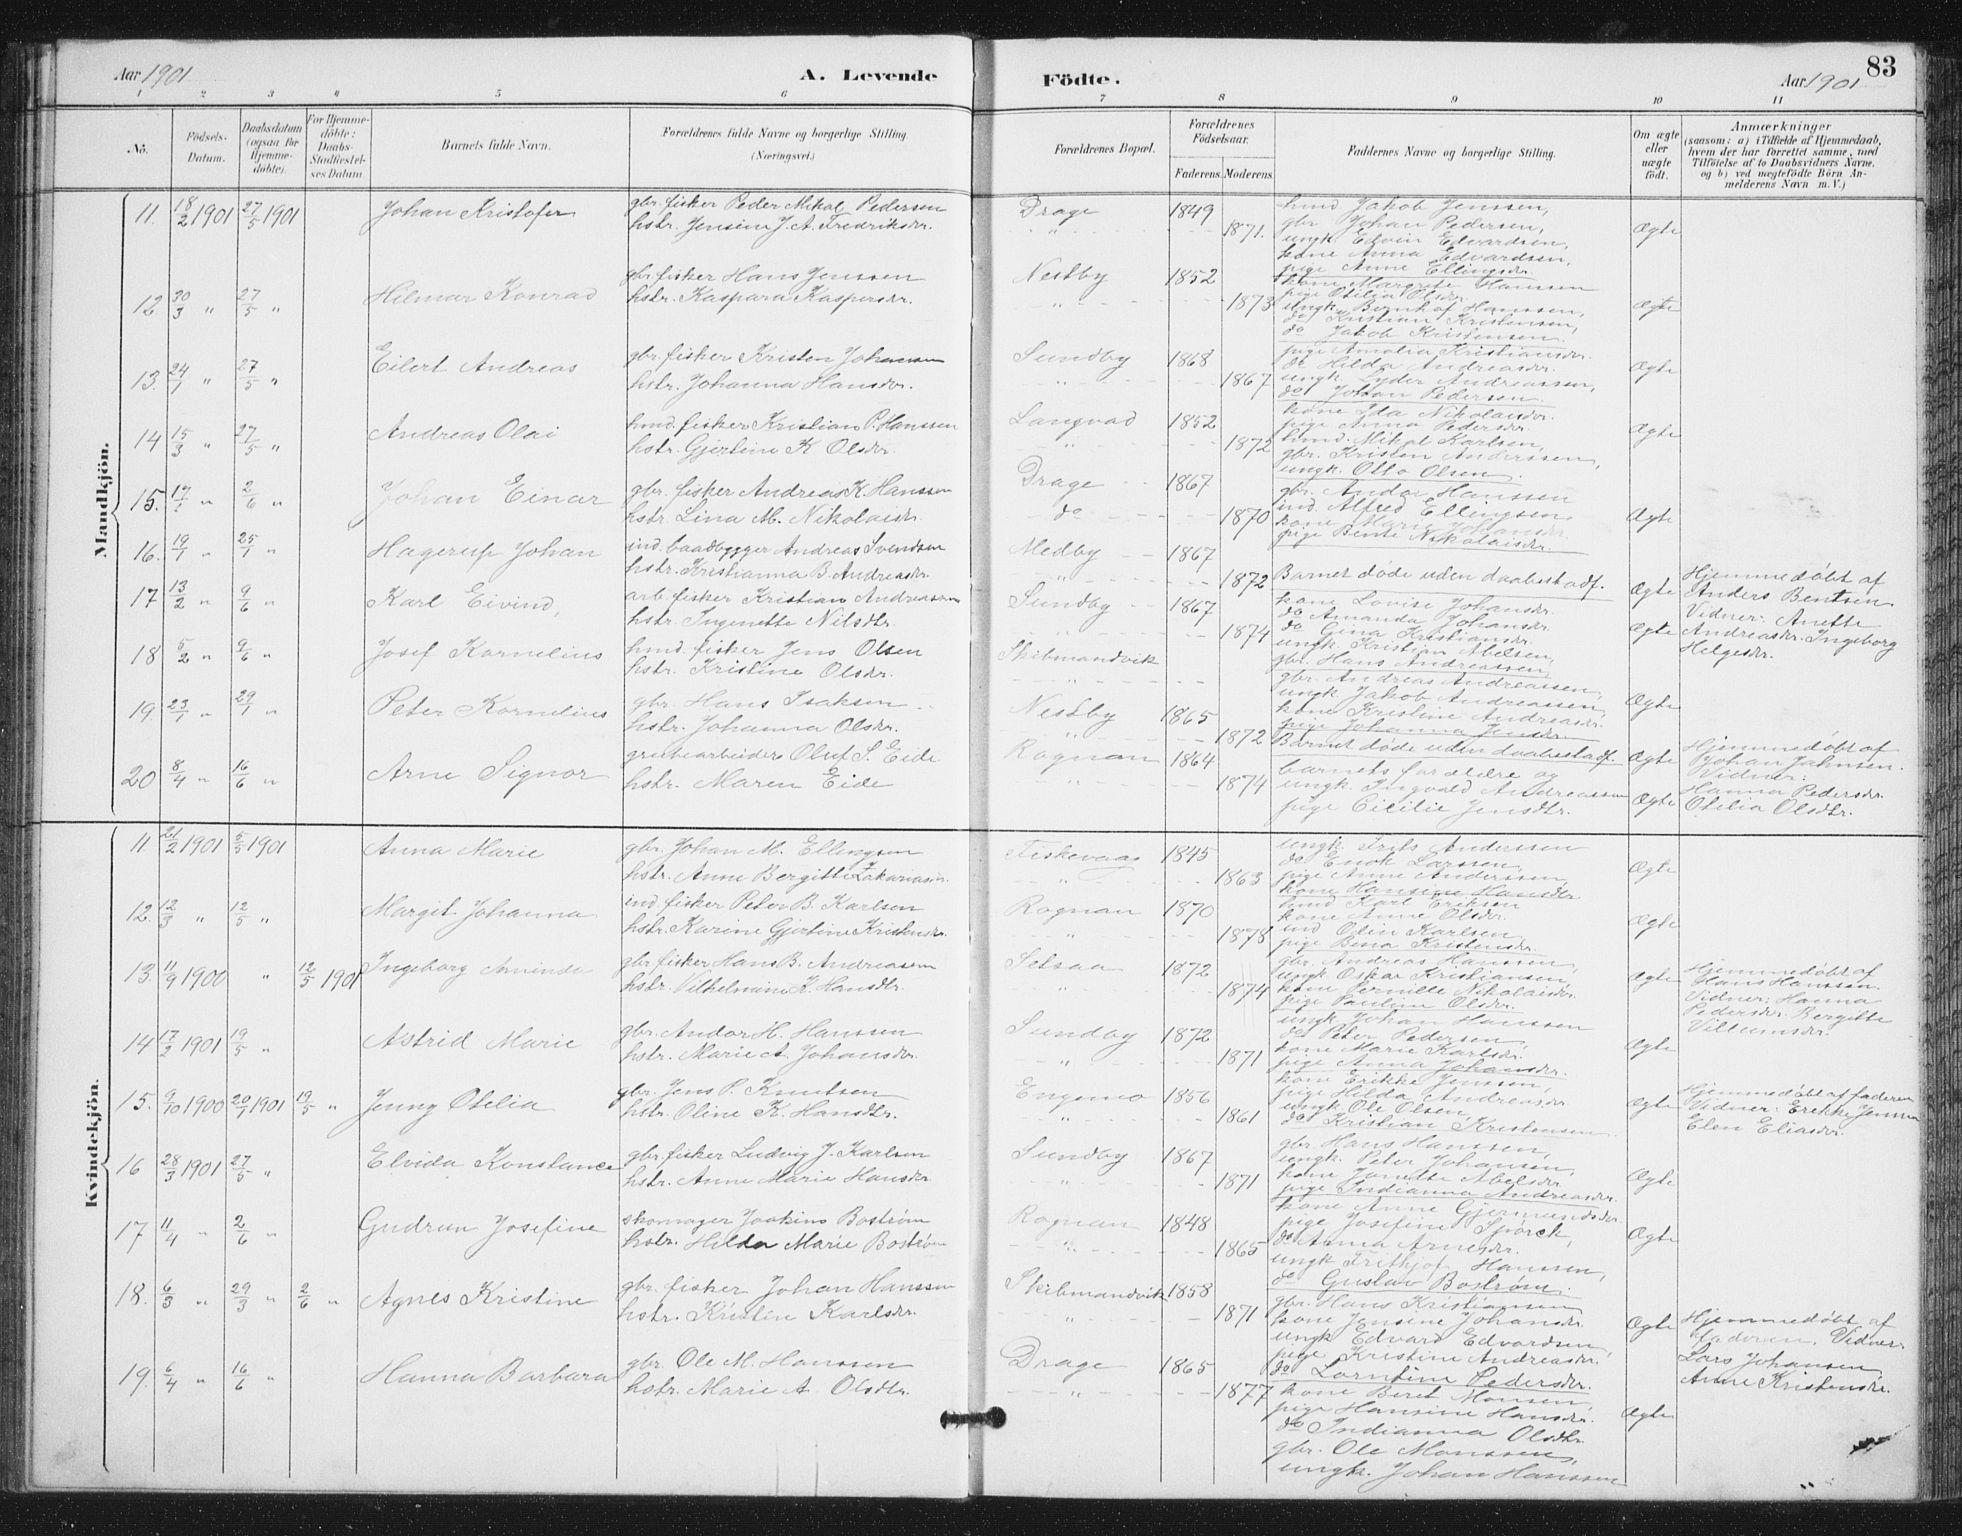 Aar 1901
A. Levende
Födte.
Aar 1901
83
1 2 3 4 5 6 7 8 9 10 11
No.
Födsels-Datum.
Daabsdatum (ogsaa for Hjemme-döbte).
For Hjemme-döbte: Daabs-Stadfæstel-ses Datum
Barnets fulde Navn.
Forældrenes fulde Navne og borgerlige Stilling. (Næringsvei.)
Forældrenes Bopæl.
Forældrenes Födselsaar.
Faderens. Moderens.
Faddernes Navne og borgerlige Stilling.
Om ægte eller uægte födt.
Anmærkninger
(saasom: a) i Tilfælde af Hjemmedaab,
hvem der har forrettet samme, med
Tilföielse af to Daabsvidners Navne,
og b) ved uægtefödte Börn An-
melderens Navn m. V.)
Mandkjön.
11. 18/2 1901 27/5 1901 Johan Kristofer
gbr. fisker Peder Mikal Pedersen
hstr. Jensine J. A. Fredriksdr.
Drage 1849
" 1871.
hmd Jakob Jenssen,
gbr Johan Pedersen,
ungk. Edvin Edvardsen,
kone Anna Edvardsen,
pige Anne Ellingsdr.
Ægte
12. 30/3 " 27/5 " Hilmar Konrad
gbr. fisker Hans Jenssen
hstr. Kaspara Kaspersdr.
Nestby 1852
" 1873
kone Margrete Hanssen
pige Otilia Olsdr.
ungk. Bernhof Hanssen,
do Kristian Kristensen,
do Jakob Kristensen.
Ægte
13. 24/1 " 27/5 " Eilert Andreas
gbr. fisker Kristen Johansen
hstr. Johanna Hansdr.
Sundby 1868
" 1867
pige Amalia Kristiansdr.
do Hilda Andreasdr.
ungk Lyder Andreassen,
do Johan Pedersen.
Ægte
14 15/3 " 27/5 " Andreas Olai
hmd. fisker Kristian P. Hanssen
hstr. Gjertine K Olsdr.
Langvad 1852
" 1872
kone Ida Nikolaisdr.
pige Anna Pedersdr.
hmd. Mikal Karlsen
gbr. Kristen Anderssen,
ungk. Otto Olsen.
Ægte
15. 17/1 " 2/6 " Johan Einar
gbr. fisker Andreas K. Hanssen
hstr. Lina M. Nikolaisdr.
Drage 1867
do 1870
gbr. Andor Hanssen
ind. Alfred Ellingsen
kone Marie Johansdr.
pige Bente Nikolaisdr.
Ægte
16. 19/1 " 25/1 " Hagerup Johan
ind. baadbygger Andreas Svendsen
hstr. Kristianna B. Andreasdr.
Medby 1867
" 1872
Barnet döde uden daabestadf.
Ægte
Hjemmedöbt af
Anders Bentsen
Vidner: Anette
Andreasdr. Ingeborg
Helgesdr.
17 13/2 " 9/6 " Karl Eivind,
arb. fisker Kristian Andreassen
hstr. Ingenette Nilsdtr.
Sundby 1867
" 1874
kone Lovise Johansdr.
do Amanda Johansdr.
do Gina Kristiansdr.
ungk Kristian Abelsen,
gbr. Hans Andreassen
Ægte
18 5/2 " 9/6 " Josef Kornelius
hmd. fisker Jens Olsen
hstr. Kristine Olsdr.
Skibmandvik
"
gbr. Andreas Andreassen,
ungk Jakob Andreassen,
kone Kristine Andreasdr.
pige Johanna Jensdr.
Ægte
19 23/1 " 29/1 " Peter Kornelius
gbr. Hans Isaksen
hstr. Johanna Olsdr.
Nestby 1865
" 1872
Barnet döde uden daabestadf.
Ægte
Hjemmedöbt af
Johan Jahnsen.
Vidner:
Hanna Pedersdr.
Otelia Olsdtr.
20 8/4 " 16/6 " Arne Signor
grubearbeider Oluf S. Eide
hstr. Maren Eide
Rognan 1864
" 1874
barnets forældre og
ungk. Ingvald Andreassen
pige Cicilie Jensdtr.
Ægte
Kvindekjön.
11 21/2 1901 5/5 1901 Anna Marie
gbr. Johan M. Ellingsen
hstr. Anne Bergitte Zakariasen.
Fiskevaag 1845
" 1863
ungk. Frits Anderssen
do Enok Larssen,
pige Anne Anderssen,
kone Hansine Hansdtr
Ægte
12. 12/3 " 12/5 " Margit Johanna
ind. fisker Peter B. Karlsen
hstr. Karine Gjertine Kristensdr.
Rognan 1870
" 1878
hmd Karl Eriksen
kone Anne Olsdr.
ind Olin Karlsen,
pige Bina Kristensdr.
Ægte
13. 11/9 1900 " 12/5 1901 Ingeborg Aminda
gbr. fisker Hans B. Andreassen
hstr. Vilhelmine K. Hansdtr.
Setsaa 1872
" 1874
gbr. Andreas Hanssen,
ungk Oskar Kristiansen,
kone Pernille Nikolaisdr.
pige Pauline Olsdr.
Ægte
Hjemmedöbt af
Hans Hanssen.
Vidner: Hanna
Pedersdr. Bergitte
Villumsdr.
14 17/2 1901 19/5 " Astrid Marie
gbr. Andor H. Hanssen
hstr. Marie A. Johansdr.
Sundby 1872
" 1871
ungk Johan Hanssen
do Peter Pedersen,
kone Marie Karlsdr.
pige Anna Johansdr.
Ægte
15. 9/10 1900 20/1 1901 19/5 " Jenny Otelia
gbr. Jens P. Knutsen
hstr. Oline K. Hansdtr.
Engemo 1856
" 1861
kone Erikke Jenssen,
pige Hilda Andreasdr
ungk Ole Olsen
do Kristian Kristensen.
Ægte
Hjemmedöbt af faderen
Vidner: Erekke Jenssen
Elen Eliasdr.
16 28/3 1901 27/5 " Elvida Konstance
gbr. fisker Ludvig J. Karlsen
hstr. Anne Marie Hansdr
Sundby 1867
" 1871
gbr. Hans Hanssen,
ungk. Peter Johansen,
kone Janette Abelsdr
pige Indianna Andreasdr.
Ægte
17 11/4 " 2/6 " Gudrun Josefine
skomager Joakim Boström
hstr. Hilda Marie Boström
Rognan 1848
" 1865
kone Anne Gjermundsdr.
pige Josefine Spörck,
do Anna Arnesdr.
ungk Frithjof Hanssen,
do Gustav Boström.
Ægte
18. 6/3 " 29/3 " 2/6 " Agnes Kristine
gbr. fisker Johan Hanssen
hstr. Kristin Karlsdr.
Skibmandvik 1858
" 1871
gbr. Hans Kristiansen
kone Jensine Johansdr.
ungk Edvard Edvardsen,
pige Kristine Andreasdr.
do Lorntine Pedersdr.
Ægte
Hjemmedöbt af
faderen. Vidner:
Lars Johansen
Anne Kristensdr.
19. 6/4 " 16/6 " Hanna Barbara
gbr. Ole M. Hanssen
hstr. Marie A. Olsdtr.
Drage 1865
" 1877
kone Beret Monsen,
pige Hansine Hansdr.
do Indianna Olsdtr.
gbr. Ole Monssen,
ungk. Johan Hanssen
Ægte